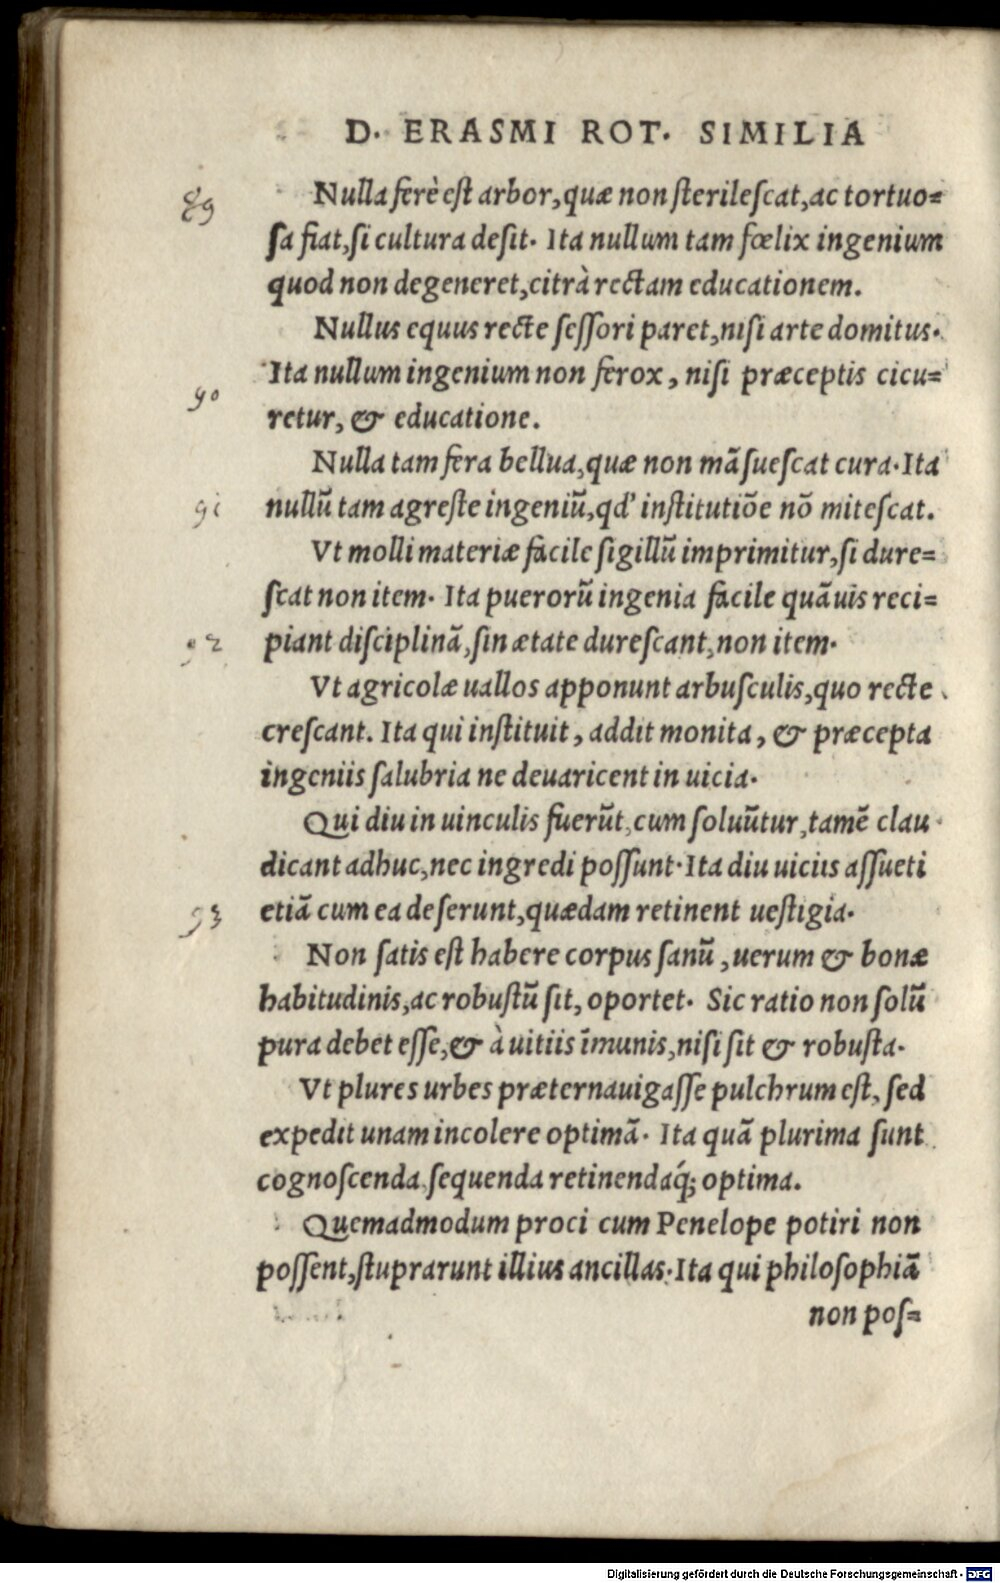 D. ERASMI ROT. SIMILIA
89
Nulla ferè est arbor, quæ non sterilescat, ac tortuo=
sa fiat, si cultura desit. Ita nullum tam fœlix ingenium
quod non degeneret, citrà rectam educationem.
Nullus equus recte sessori paret, nisi arte domitus.
Ita nullum ingenium non ferox, nisi præceptis cicu=
90
retur, & educatione.
Nulla tam fera bellua, quæ non mãsuescat cura. Ita
91
nullũ tam agreste ingeniũ, qđ institutiõe nõ mitescat.
Vt molli materiæ facile sigillũ imprimitur, si dure=
scat non item. Ita puerorũ ingenia facile quãuis reci=
92
piant disciplinã, sin ætate durescant, non item.
Vt agricolæ uallos apponunt arbusculis, quo recte
crescant. Ita qui instituit, addit monita, & præcepta
ingeniis salubria ne deuaricent in uicia.
Qui diu in uinculis fuerũt, cum soluũtur, tamẽ clau
dicant adhuc, nec ingredi possunt. Ita diu uiciis assueti
93
etiã cum ea deserunt, quædam retinent uestigia.
Non satis est habere corpus sanũ, uerum & bonæ
habitudinis, ac robustũ sit, oportet. Sic ratio non solũ
pura debet esse, & à uitiis ĩmunis, nisi sit & robusta.
Vt plures urbes præternauigasse pulchrum est, sed
expedit unam incolere optimã. Ita quã plurima sunt
cognoscenda, sequenda retinendaq́; optima.
Quemadmodum proci cum Penelope potiri non
possent, stuprarunt illius ancillas. Ita qui philosophiã
non pos=
Digitalisierung gefördert durch die Deutsche Forschungsgemeinschaft - DFG